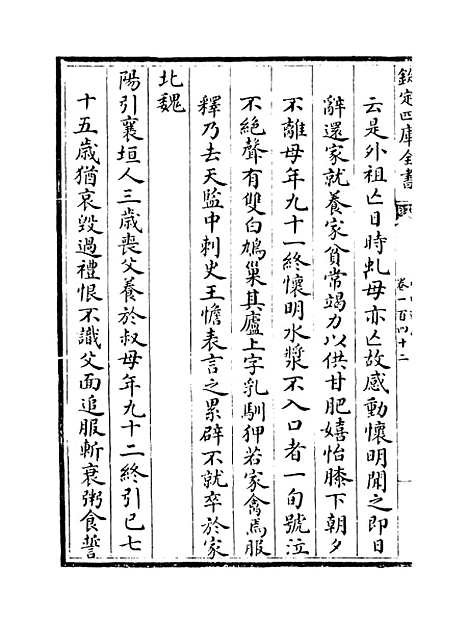 欽定四庫全書
卷一百四十二
云是外祖亡日時虬母亦亡故感動懷明聞之即日
辭還家就養家貧常竭力以供甘肥嬉怡膝下朝夕
不離母年九十一終懷明水漿不入口者一旬號泣
不絶聲有雙白鳩巢其廬上字乳馴狎若家禽焉服
釋乃去天監中刺史王憺表言之累辟不就卒於家
北魏
陽引襄垣人三歲喪父養於叔母年九十二終引已七
十五歲猶哀毀過禮恨不識父面追服斬衰粥食誓